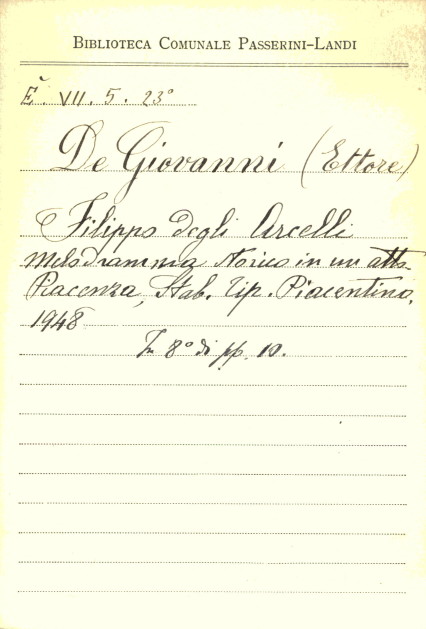 BIBLIOTECA COMUNALE PASSERINI-LANDI
Ě. VII. 5. 23°
De Giovanni (Ettore)
Filippo degli Arcelli
Melodramma storico in un atto
Piacenza, Stab. Tip. Piacentino,
1948
In 8° di pp. 10.